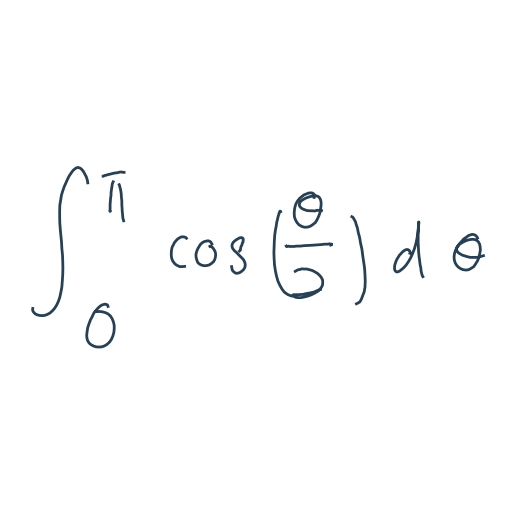 ∫₀^π cos(θ/ ) dθ